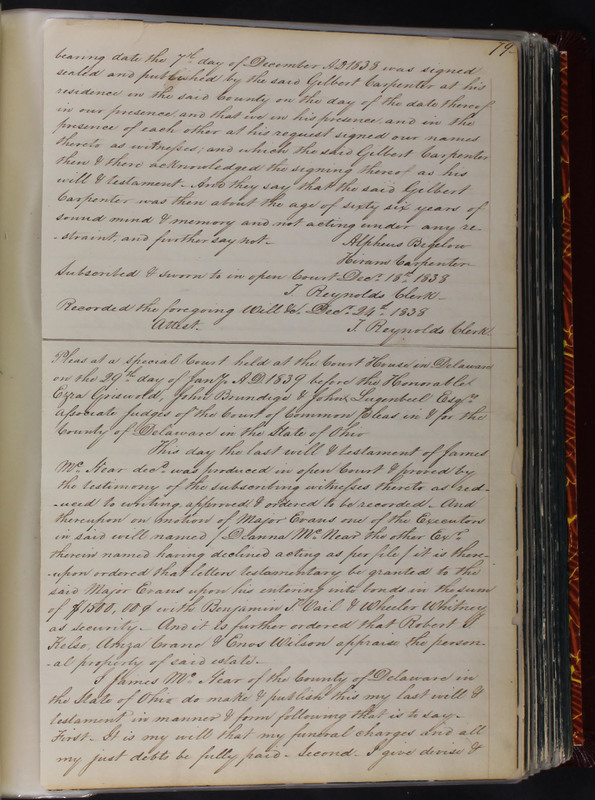 79
bearing date the 7th day of December A.D. 1838 was signed
sealed and published by the said Gilbert Carpenter at his
residence in the said County on the day of the date thereof
in our presence, and that we in his presence and in the
presence of each other at his request signed our names
thereto as witnesses; and which the said Gilbert Carpenter
then & there acknowledged the signing thereof as his
will & testament. And they say that the said Gelbert
Carpenter was then about the age of sixty six years of
sound mind & memory and not acting under any re-
-straint, and further say not. Alpheus Bigelow
Hiram Carpenter
Subscribed & sworn to in open Court Decr. 18th. 1838
T. Reynolds Clerk
Recorded the foregoing Will &c. Decr. 24th. 1838
Attest. T. Reynolds Clerk
Pleas at a special Court held at the Court House in Delaware
on the 29th day of Jany. A.D. 1839 before the Honorable
Ezra Griswold, John Brundige & John Lugenbeel Esqrs.
associate judges of the Court of Common Pleas in & for the
County of Delaware in the State of Ohio
This day the last will & testament of James
Mc. Near decd. was produced in open Court & proved by
the testimony of the subscribing witnesses thereto as red-
-uced to writing approved & ordered to be recorded. And
thereupon on motion of Major Evans one of the Executors
in said will named (Mc. Near the other Exr.
therein named having declined acting as per file) it is there-
-upon ordered that letters testamentary be granted to the
said Major Evans upon his entering into bonds in the sum
of $1500,00 with Benjamin Vail & Wheeler Whitney
as security. And it is further ordered that Robert
Kelso, Amza Crane & Enos Wilson appraise the person-
-al property of said estate.
I James Mc. Near of the County of Delaware in
the State of Ohio do make & publish this my last will &
testament in manner & form following that is to say.
First. It is my will that my funeral charges and all
my just debts be fully paid. Second. I give devise &